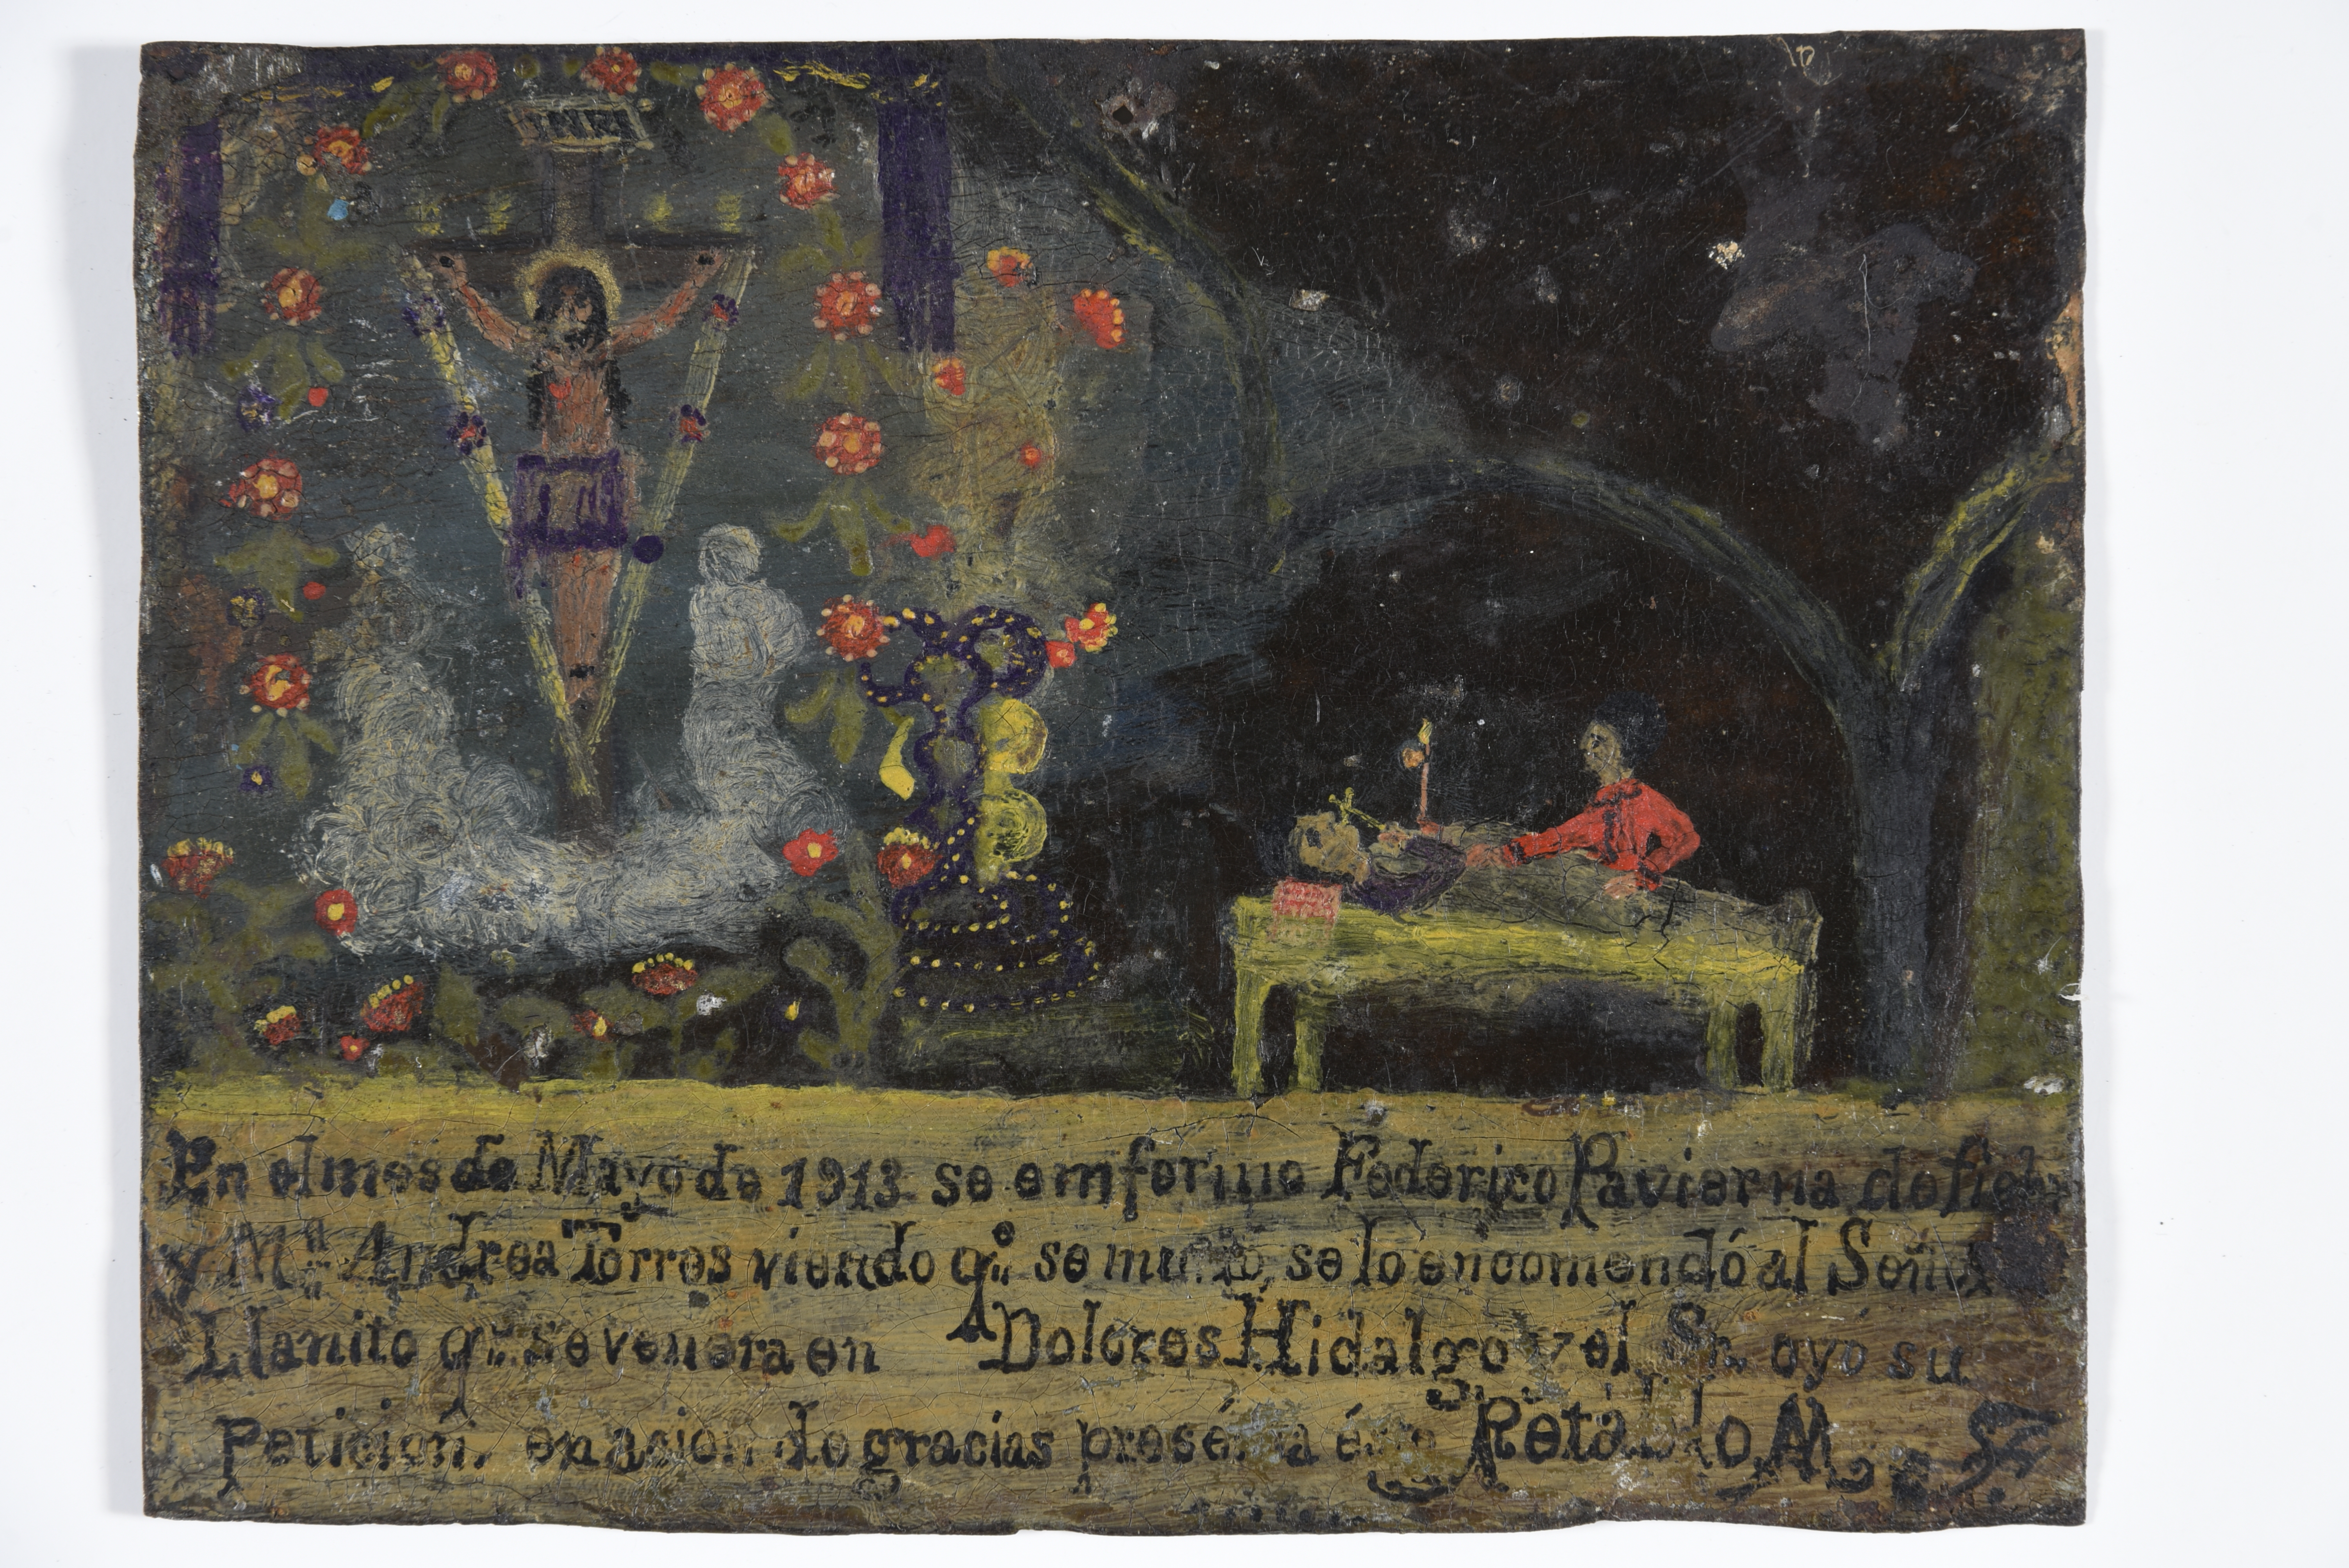 INRI
En el mes de Mayo de 1913 se emfermo Federico Pavierna de fiebr
y Mª Andrea Torres viendo qe se se lo encomendó al Señor
Llanito qe se venera en Dolores Hidalgo y el Sr. oyó su
Petición, en acion de gracias presénta éste Retablo